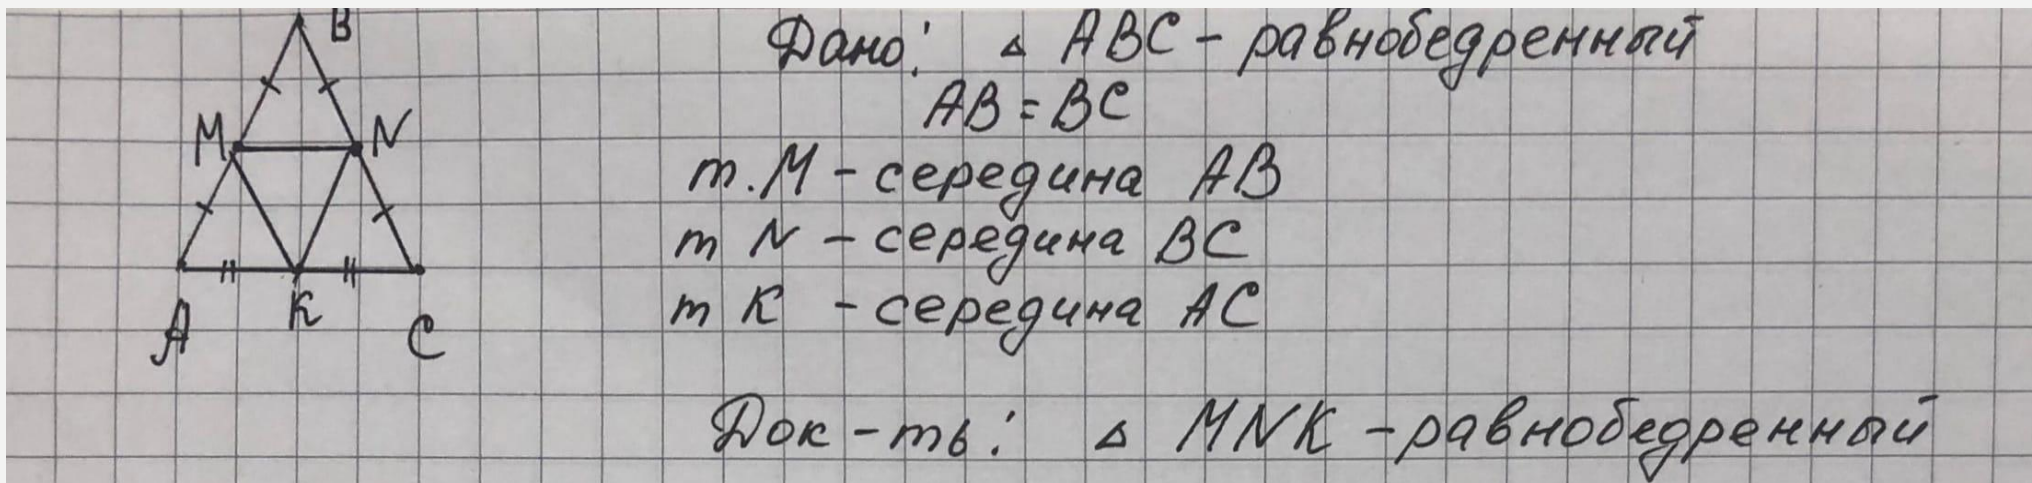 B
M
N
A
K
C
Дано: △ ABC - равнобедренный
AB = BC
т. M - середина AB
т N - середина BC
т K - середина AC
Док-ть: △ MNK - равнобедренный